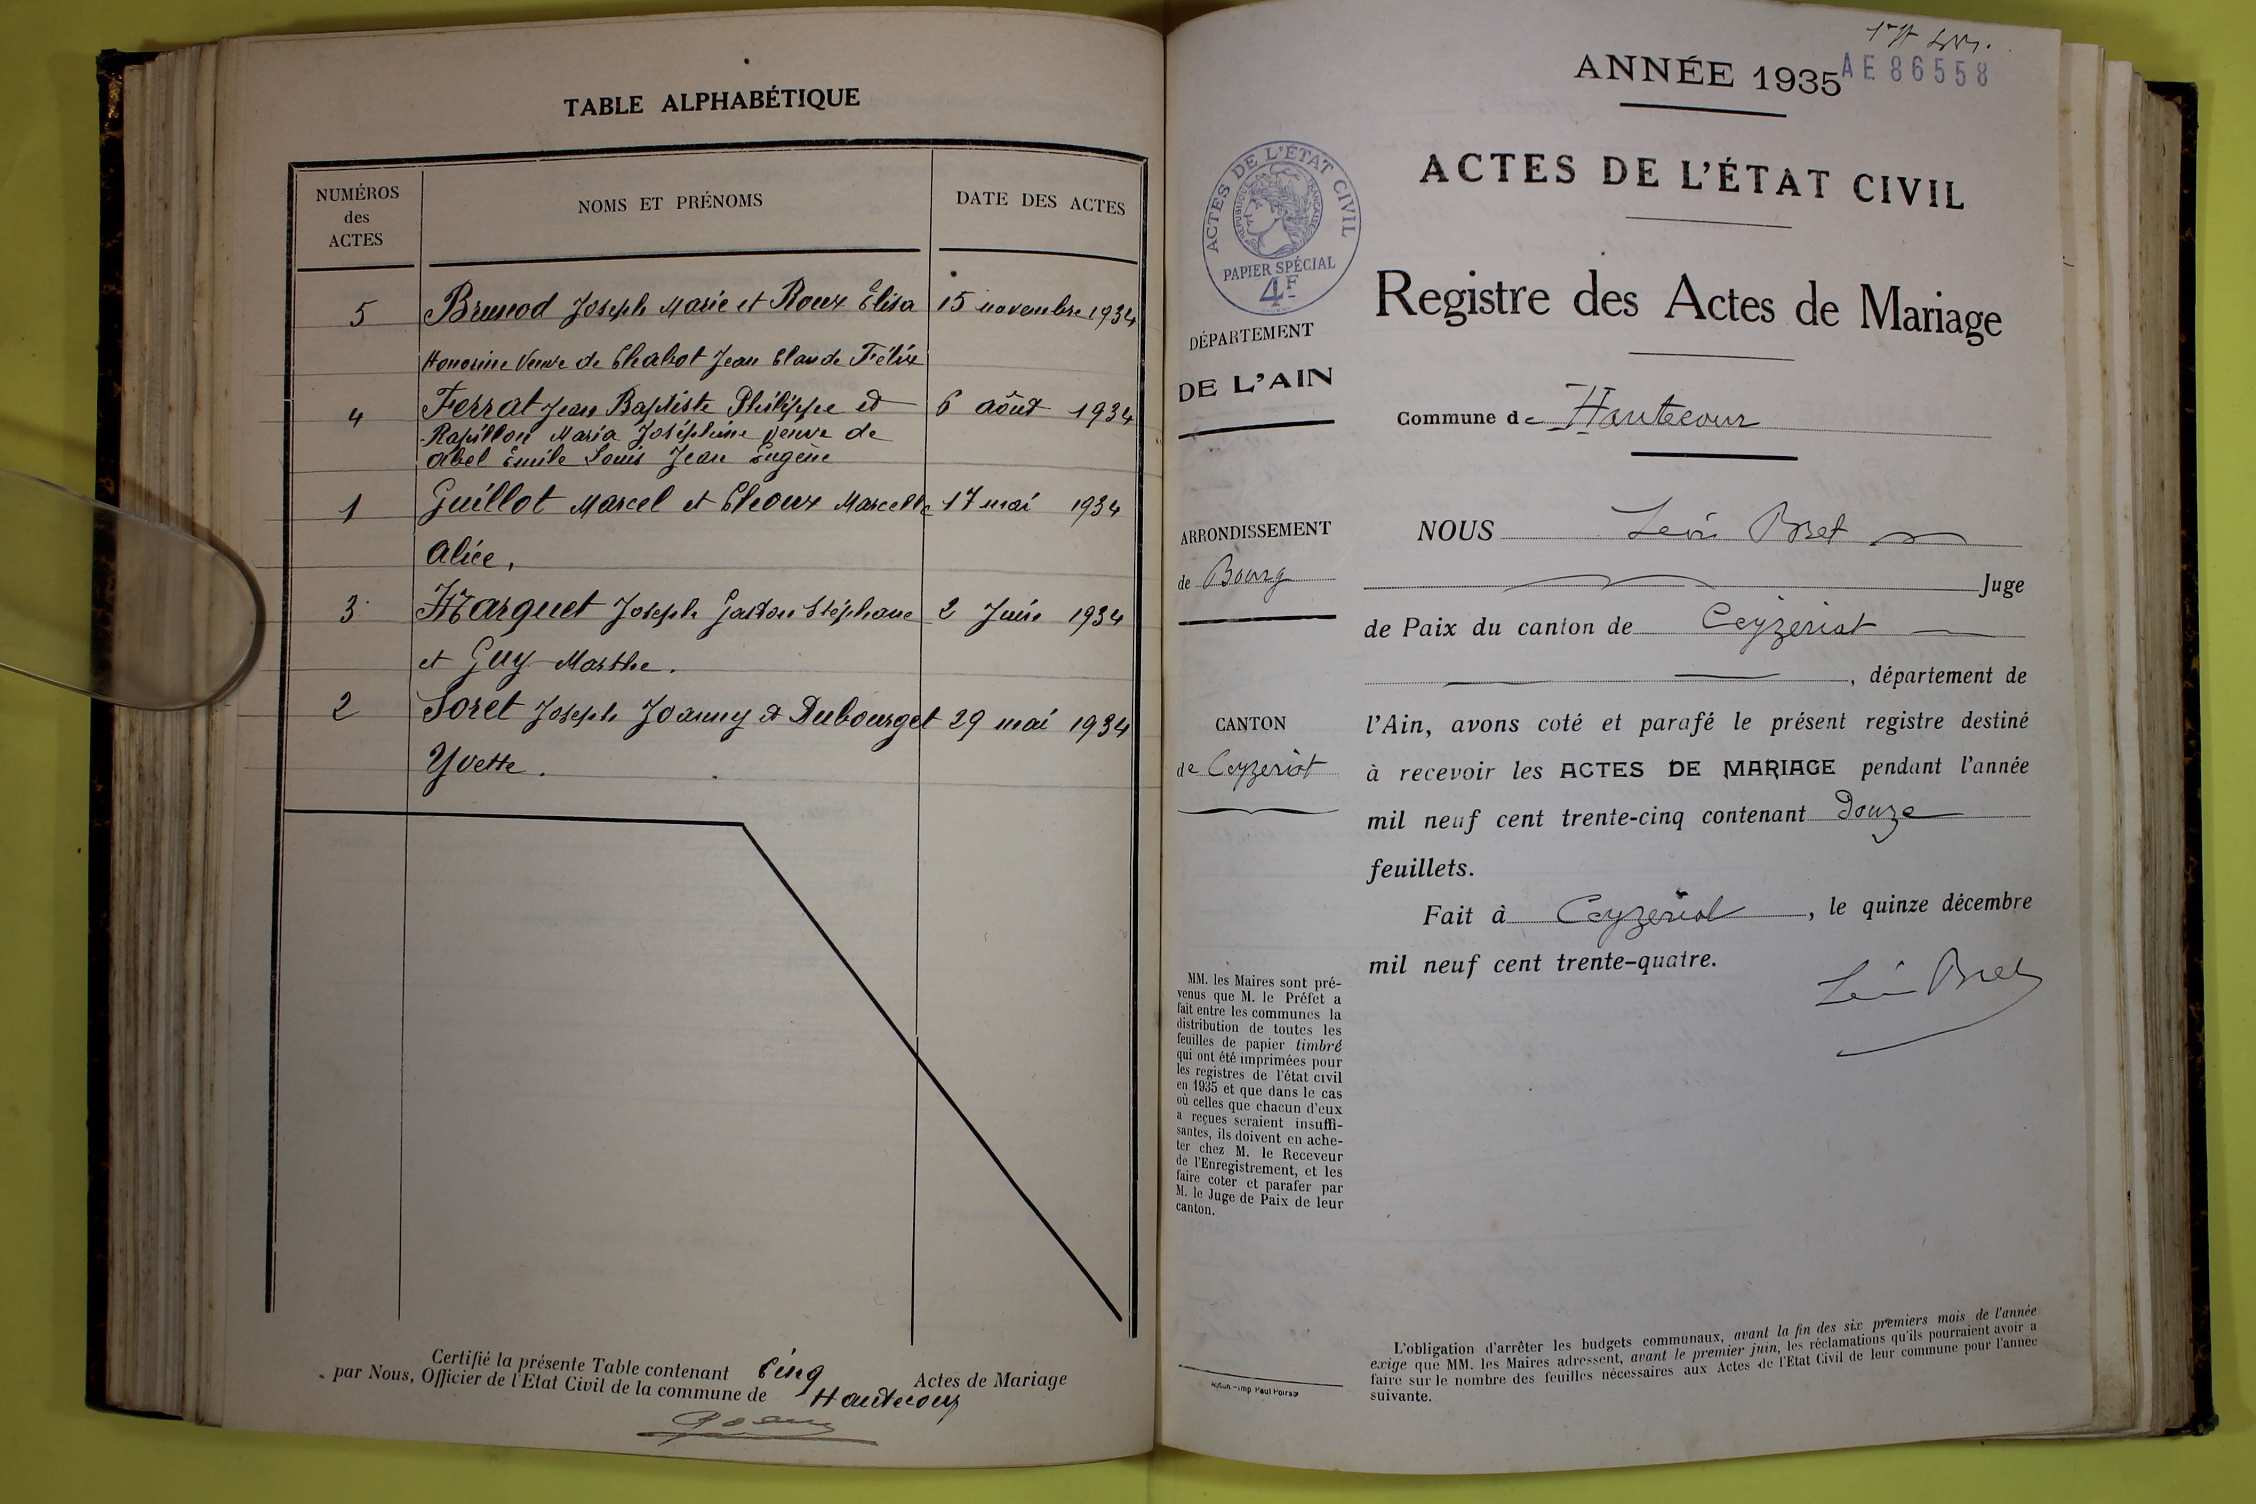 TABLE ALPHABÉTIQUE
NUMÉROS
des
ACTES
NOMS ET PRÉNOMS
DATE DES ACTES
5 Brunod Joseph Marie et Roux Elisa 15 novembre 1934
Honorine Veuve de Chabot Jean Claude Félix
4 Ferrat Jean Baptiste Philippe et 6 août 1934
Rapillon Maria Joséphine veuve de
Abel Emile Louis Jean Eugène
1 Guillot Marcel et Choux Marcelle 17 mai 1934
Alice,
3 Marquet Joseph Gaston Stéphane 2 Juin 1934
et Guy Marthe.
2 Soret Joseph Joanny et Dubourget 29 mai 1934
Yvette.
Certifié la présente Table contenant Cinq Actes de Mariage
par Nous, Officier de l'Etat Civil de la commune de Hautecour
ANNÉE 1935
AE 86558
ACTES DE L'ÉTAT CIVIL
ACTES DE L'ÉTAT CIVIL
RÉPUBLIQUE FRANÇAISE
PAPIER SPÉCIAL
4F
Registre des Actes de Mariage
DÉPARTEMENT
DE L'AIN
Commune de Hautecour
ARRONDISSEMENT
de Bourg
CANTON
de Ceyzeriat
NOUS Léon Bret
Juge
de Paix du canton de Ceyzeriat
, département de
l'Ain, avons coté et parafé le présent registre destiné
à recevoir les ACTES DE MARIAGE pendant l'année
mil neuf cent trente-cinq contenant douze
feuillets.
Fait à Ceyzeriat, le quinze décembre
mil neuf cent trente-quatre.
Léon Bret
MM. les Maires sont pré-
venus que M. le Préfet a
fait entre les communes la
distribution de toutes les
feuilles de papier timbré
qui ont été imprimées pour
les registres de l'état civil
en 1935 et que dans le cas
où celles que chacun d'eux
a reçues seraient insuffi-
santes, ils doivent en ache-
ter chez M. le Receveur
de l'Enregistrement, et les
faire coter et parafer par
M. le Juge de Paix de leur
canton.
Imp Paul Poirson
L'obligation d'arrêter les budgets communaux, avant la fin des six premiers mois de l'année
exige que MM. les Maires adressent, avant le premier juin, les réclamations qu'ils pourraient avoir à
faire sur le nombre des feuilles nécessaires aux Actes de l'Etat Civil de leur commune pour l'année
suivante.